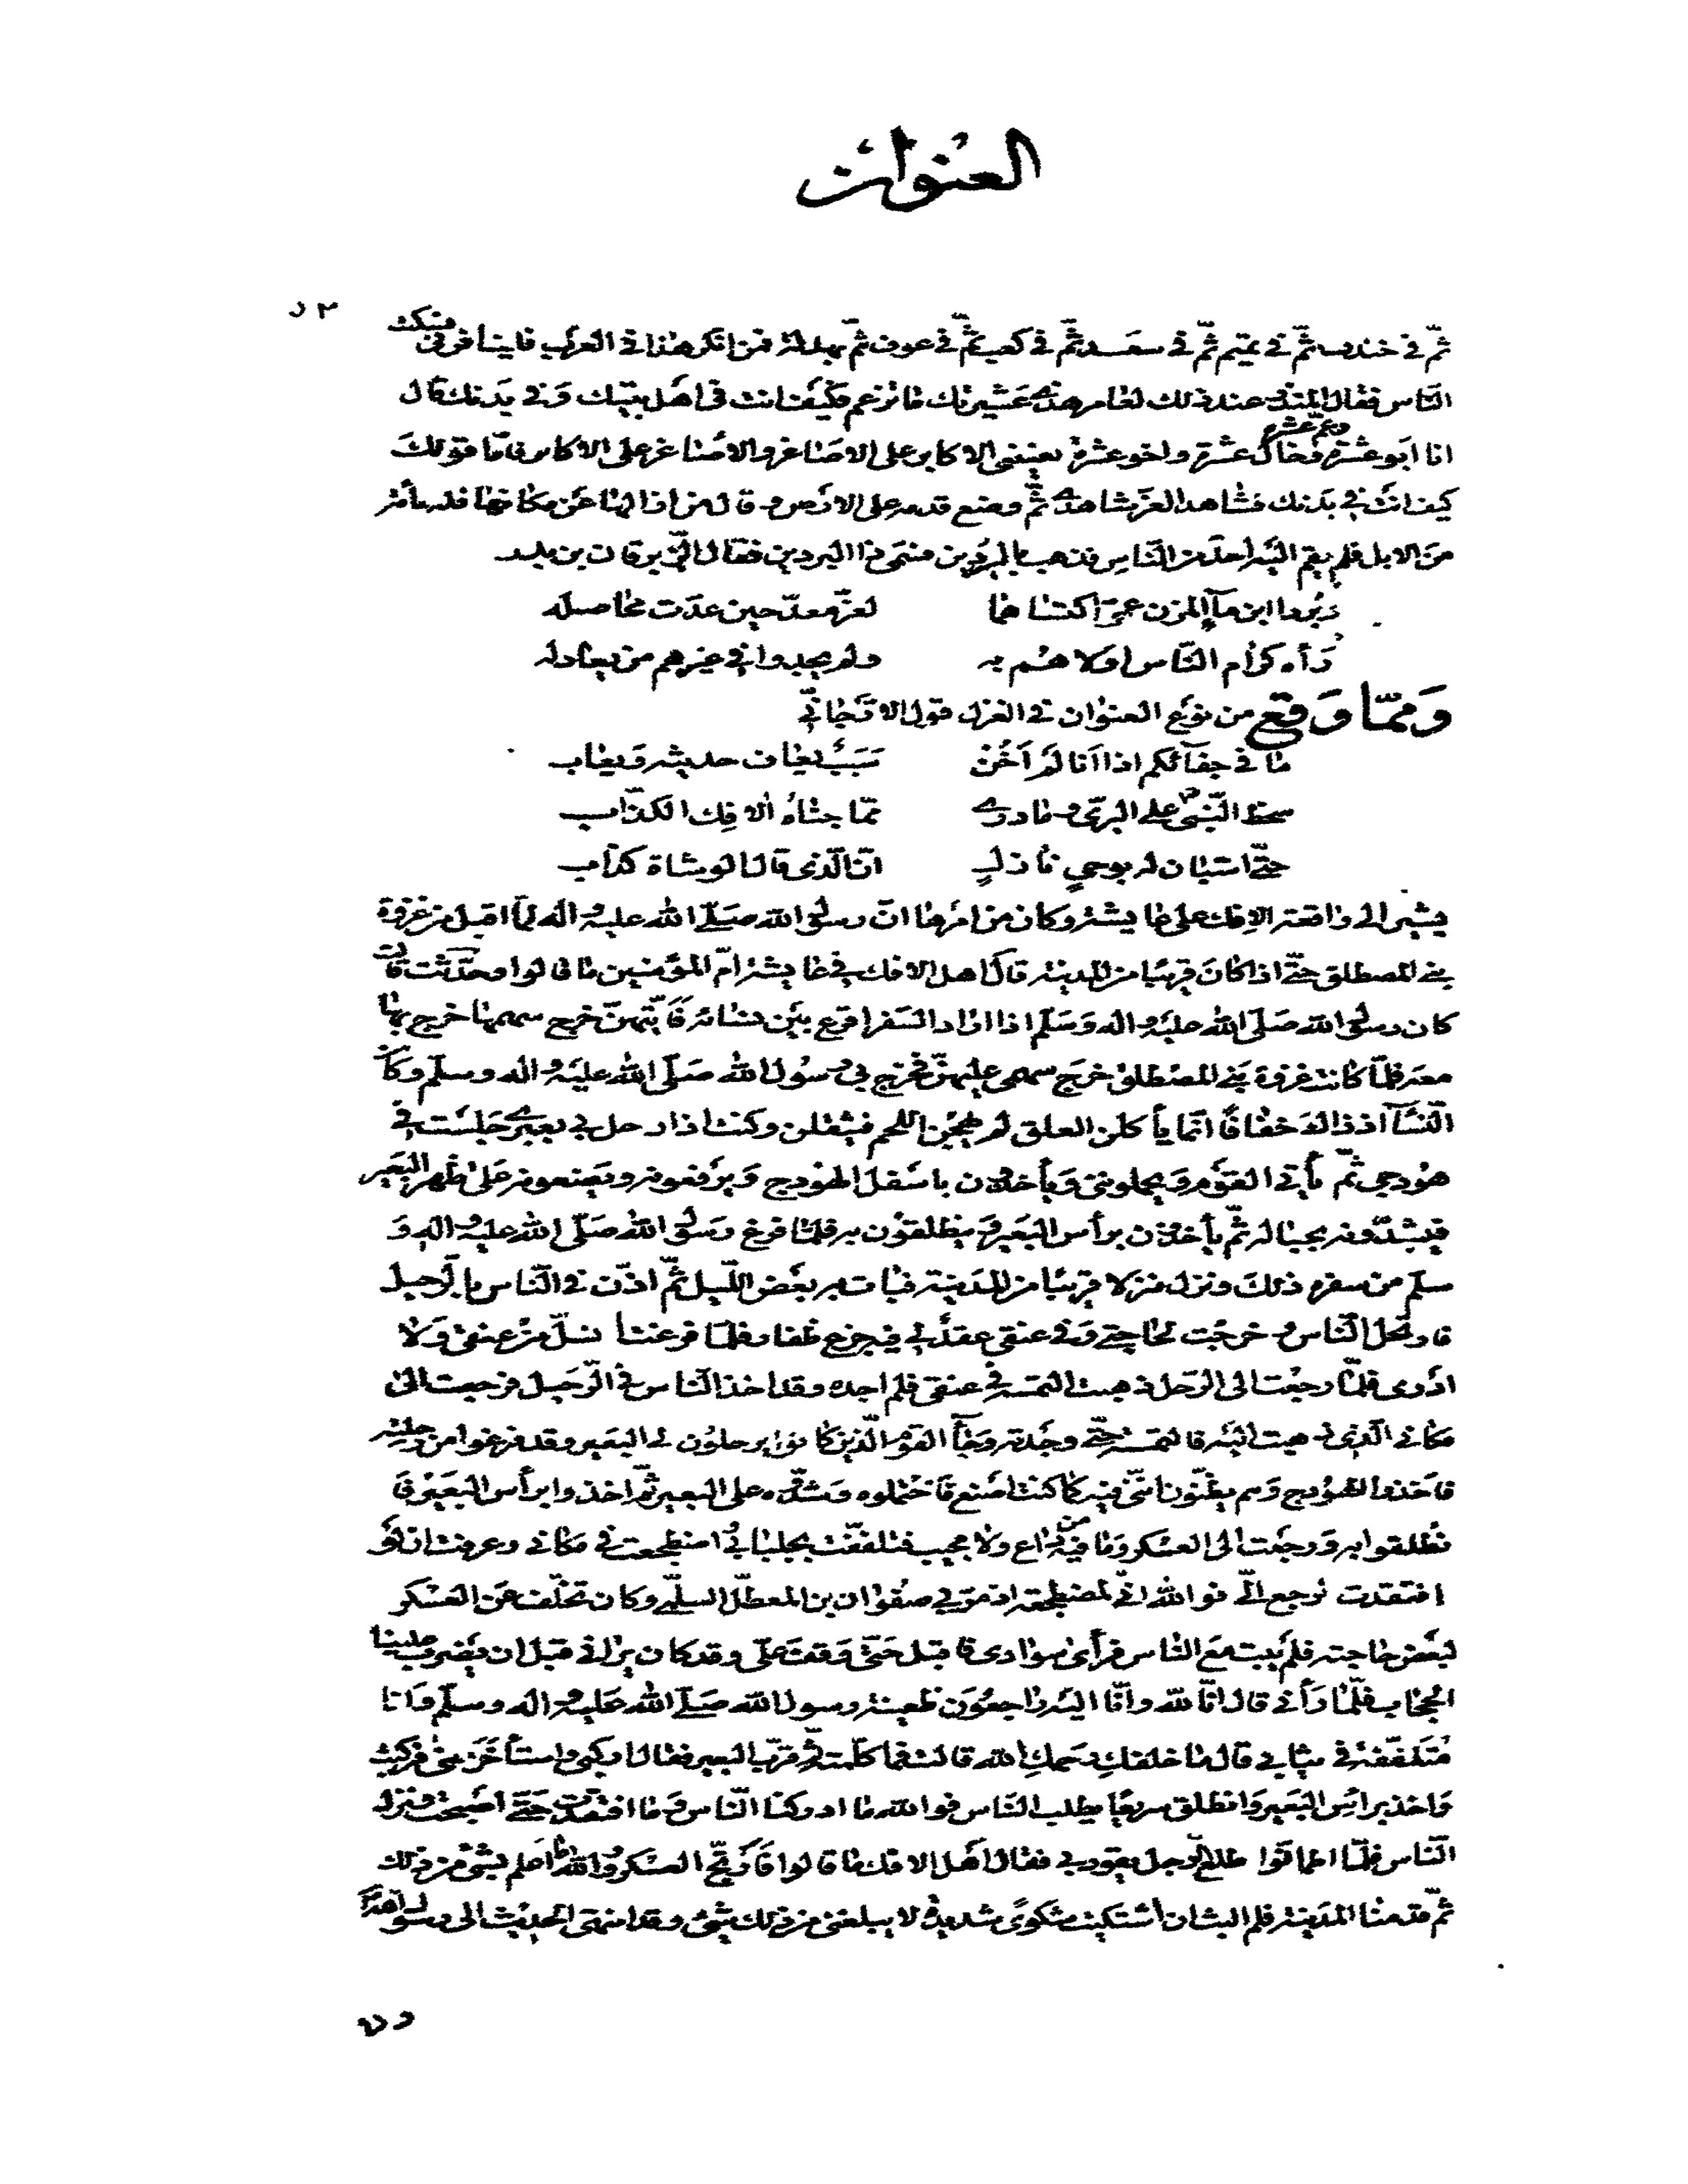 العنوان
ثمّ في خندف ثمّ في تميم ثمّ في سعد ثمّ في كعب ثمّ في عوف ثمّ بهدلة فمن انكر هذا في العرب فلينافرني فسكت
النّاس فقال المنذر عند ذلك لعامر هذه عشيرتك كما تزعم فكيف انت في اهل بيتك وفي بدنك قال
انا ابو عشرة وخال عشرة وعم عشرة واخو عشرة يعينني الاكابر على الاصاغر والاصاغر على الاكابر فامّا قولك
كيف انت في بدنك فشاهد العزّ شاهدي ثمّ وضع قدمه على الارض وقال من ازالها عن مكانها فله مأة
من الابل فلم يقم اليه احد من النّاس فذهب بالبردين فسمّى ذا البردين فقال الزّبرقان بن بدر
وبردا ابن مآء المزن عمّى اكتساهما لعزّ معدّ حين عدّت محاصله
رأه كرام النّاس اولاهم به ولم يجدوا في غيرهم من يعادله
وممّا وقع من نوع العنوان في الغزل قول الارّجانيّ
ما في جفآئكم اذا انا لم اخن سبب يعاف حديثه ويعاب
سخط النّبيّ ص على البريّ وما درى ممّا جناه الافك الكذّاب
حتّى استبان له بوحي نازل انّ الّذي قال الوشاة كذاب
يشير الى واقعة الافك على عايشة وكان من امرها انّ رسول الله صلّى الله عليه واله لمّا اقبل من غزوة
بني المصطلق حتّى اذا كان قريبا من المدينة قال اهل الافك في عايشة امّ المؤمنين ما قالوا وحدّثت قالت
كان رسول الله صلّى الله عليه واله وسلّم اذا اراد السّفر اقرع بين نسائه فايّتهنّ خرج سهمها خرج بها
معه فلمّا كانت غزوة بني المصطلق خرج سهمي عليهنّ فخرج بي رسول الله صلّى الله عليه واله وسلّم وكان
النّسآء اذ ذاك خفافا انّما يأكلن العلق لم يهجّن اللحم فيثقلن وكنت اذا رحل لي بعيري جلست في
هودجي ثمّ يأتي القوم ويحملونني ويأخذون باسفل الهودج ويرفعونه ويضعونه على ظهر البعير
فيشدّونه بحباله ثمّ يأخذون برأس البعير وينطلقون به فلمّا فرغ رسول الله صلّى الله عليه واله و
سلّم من سفره ذلك ونزل منزلا قريبا من المدينة فبات به بعض اللّيل ثمّ اذّن في النّاس بالرّحيل
فارتحل النّاس وخرجت لحاجتي وفي عنقي عقد لي فيه جزع ظفار فلمّا فرغت انسلّ من عنقي ولا
ادري فلمّا رجعت الى الرّحل ذهبت التمسه في عنقي فلم اجده وقد اخذ النّاس في الرّحيل فرجعت الى
مكاني الّذي ذهبت اليه فالتمسته حتّى وجدته وجآء القوم الّذين كانوا يرحلون لي البعير وقد فرغوا من رحلته
فاخذوا الهودج وهم يظنّون انّي فيه كما كنت اصنع فاحتملوه وشدّوه على البعير ثمّ اخذوا برأس البعير فا
نطلقوا به ورجعت الى العسكر وما فيه من داع ولا مجيب فتلفّفت بجلبابي واضطجعت في مكاني وعرفت ان لو
افتقدت لرجع اليّ فوالله انّي لمضطجعة اذ مرّ بي صفوان بن المعطّل السّلمي وكان تخلّف عن العسكر
لبعض حاجته فلم يبت مع النّاس فرأى سوادي فاقبل حتّى وقف عليّ وقد كان يراني قبل ان يضرب علينا
الحجاب فلمّا رأني قال انّا لله وانّا اليه راجعون ظعينة رسول الله صلّى الله عليه واله وسلّم وانا
متلفّفة في ثيابي قال ما خلفك رحمك الله قالت فما كلّمته ثمّ قرّب البعير فقال اركبي واستأخر عنّي فركبت
واخذ برأس البعير وانطلق سريعا يطلب النّاس فوالله ما ادركنا النّاس وما افتقدت حتّى اصبحت ونزل
النّاس فلمّا اطمأنّوا طلع الرّجل يقود بي فقال اهل الافك ما قالوا فارتجّ العسكر ووالله ما اعلم بشئ من ذلك
ثمّ قدمنا المدينة فلم البث ان اشتكيت شكوى شديدة لا يبلغني من ذلك شئ وقد انتهى الحديث الى رسول الله